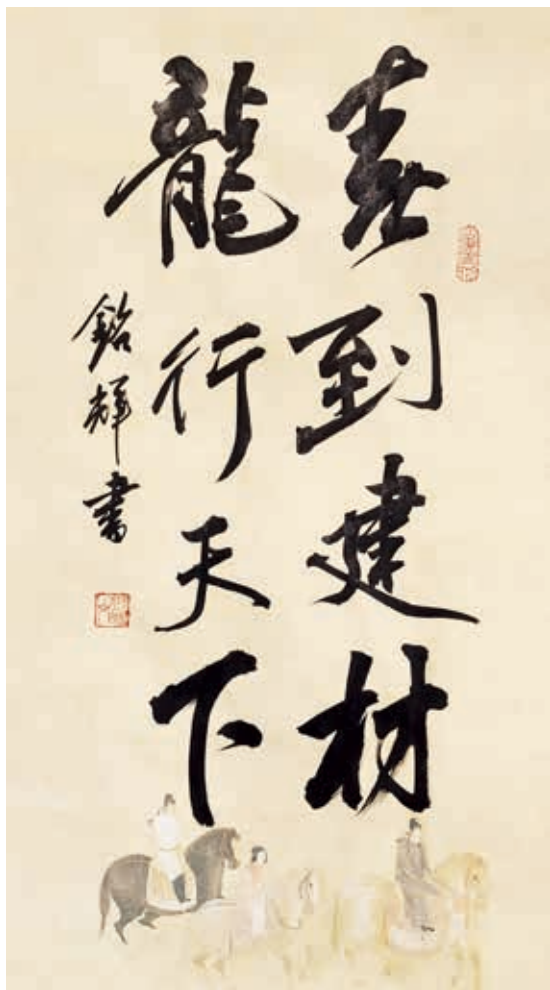 春到建材
龍行天下
銘輝書